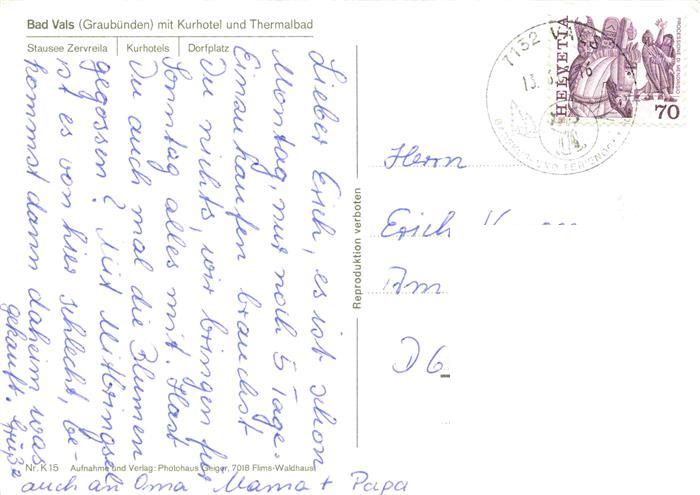 Bad Vals (Graubünden) mit Kurhotel und Thermalbad
Stausee Zervreila Kurhotels Dorfplatz
Lieber Erich, es ist schon
Montag, nur noch 5 Tage.
Einzukaufen brauchst
Du nichts, wir bringen für
Sonntag alles mit. Hast
Du auch mal die Blumen
gegossen? Mit Mitbringsel
ist es von hier schlecht, be-
kommst dann daheim was
gekauft. Grüße
auch an Oma Mama + Papa
Nr. K 15 Aufnahme und Verlag: Photohaus Geiger, 7018 Flims-Waldhaus
Reproduktion verboten
7132
13.
HELVETIA
PROCESSIONE DI MENDRISIO
70
Herrn
Erich
Am
D 6